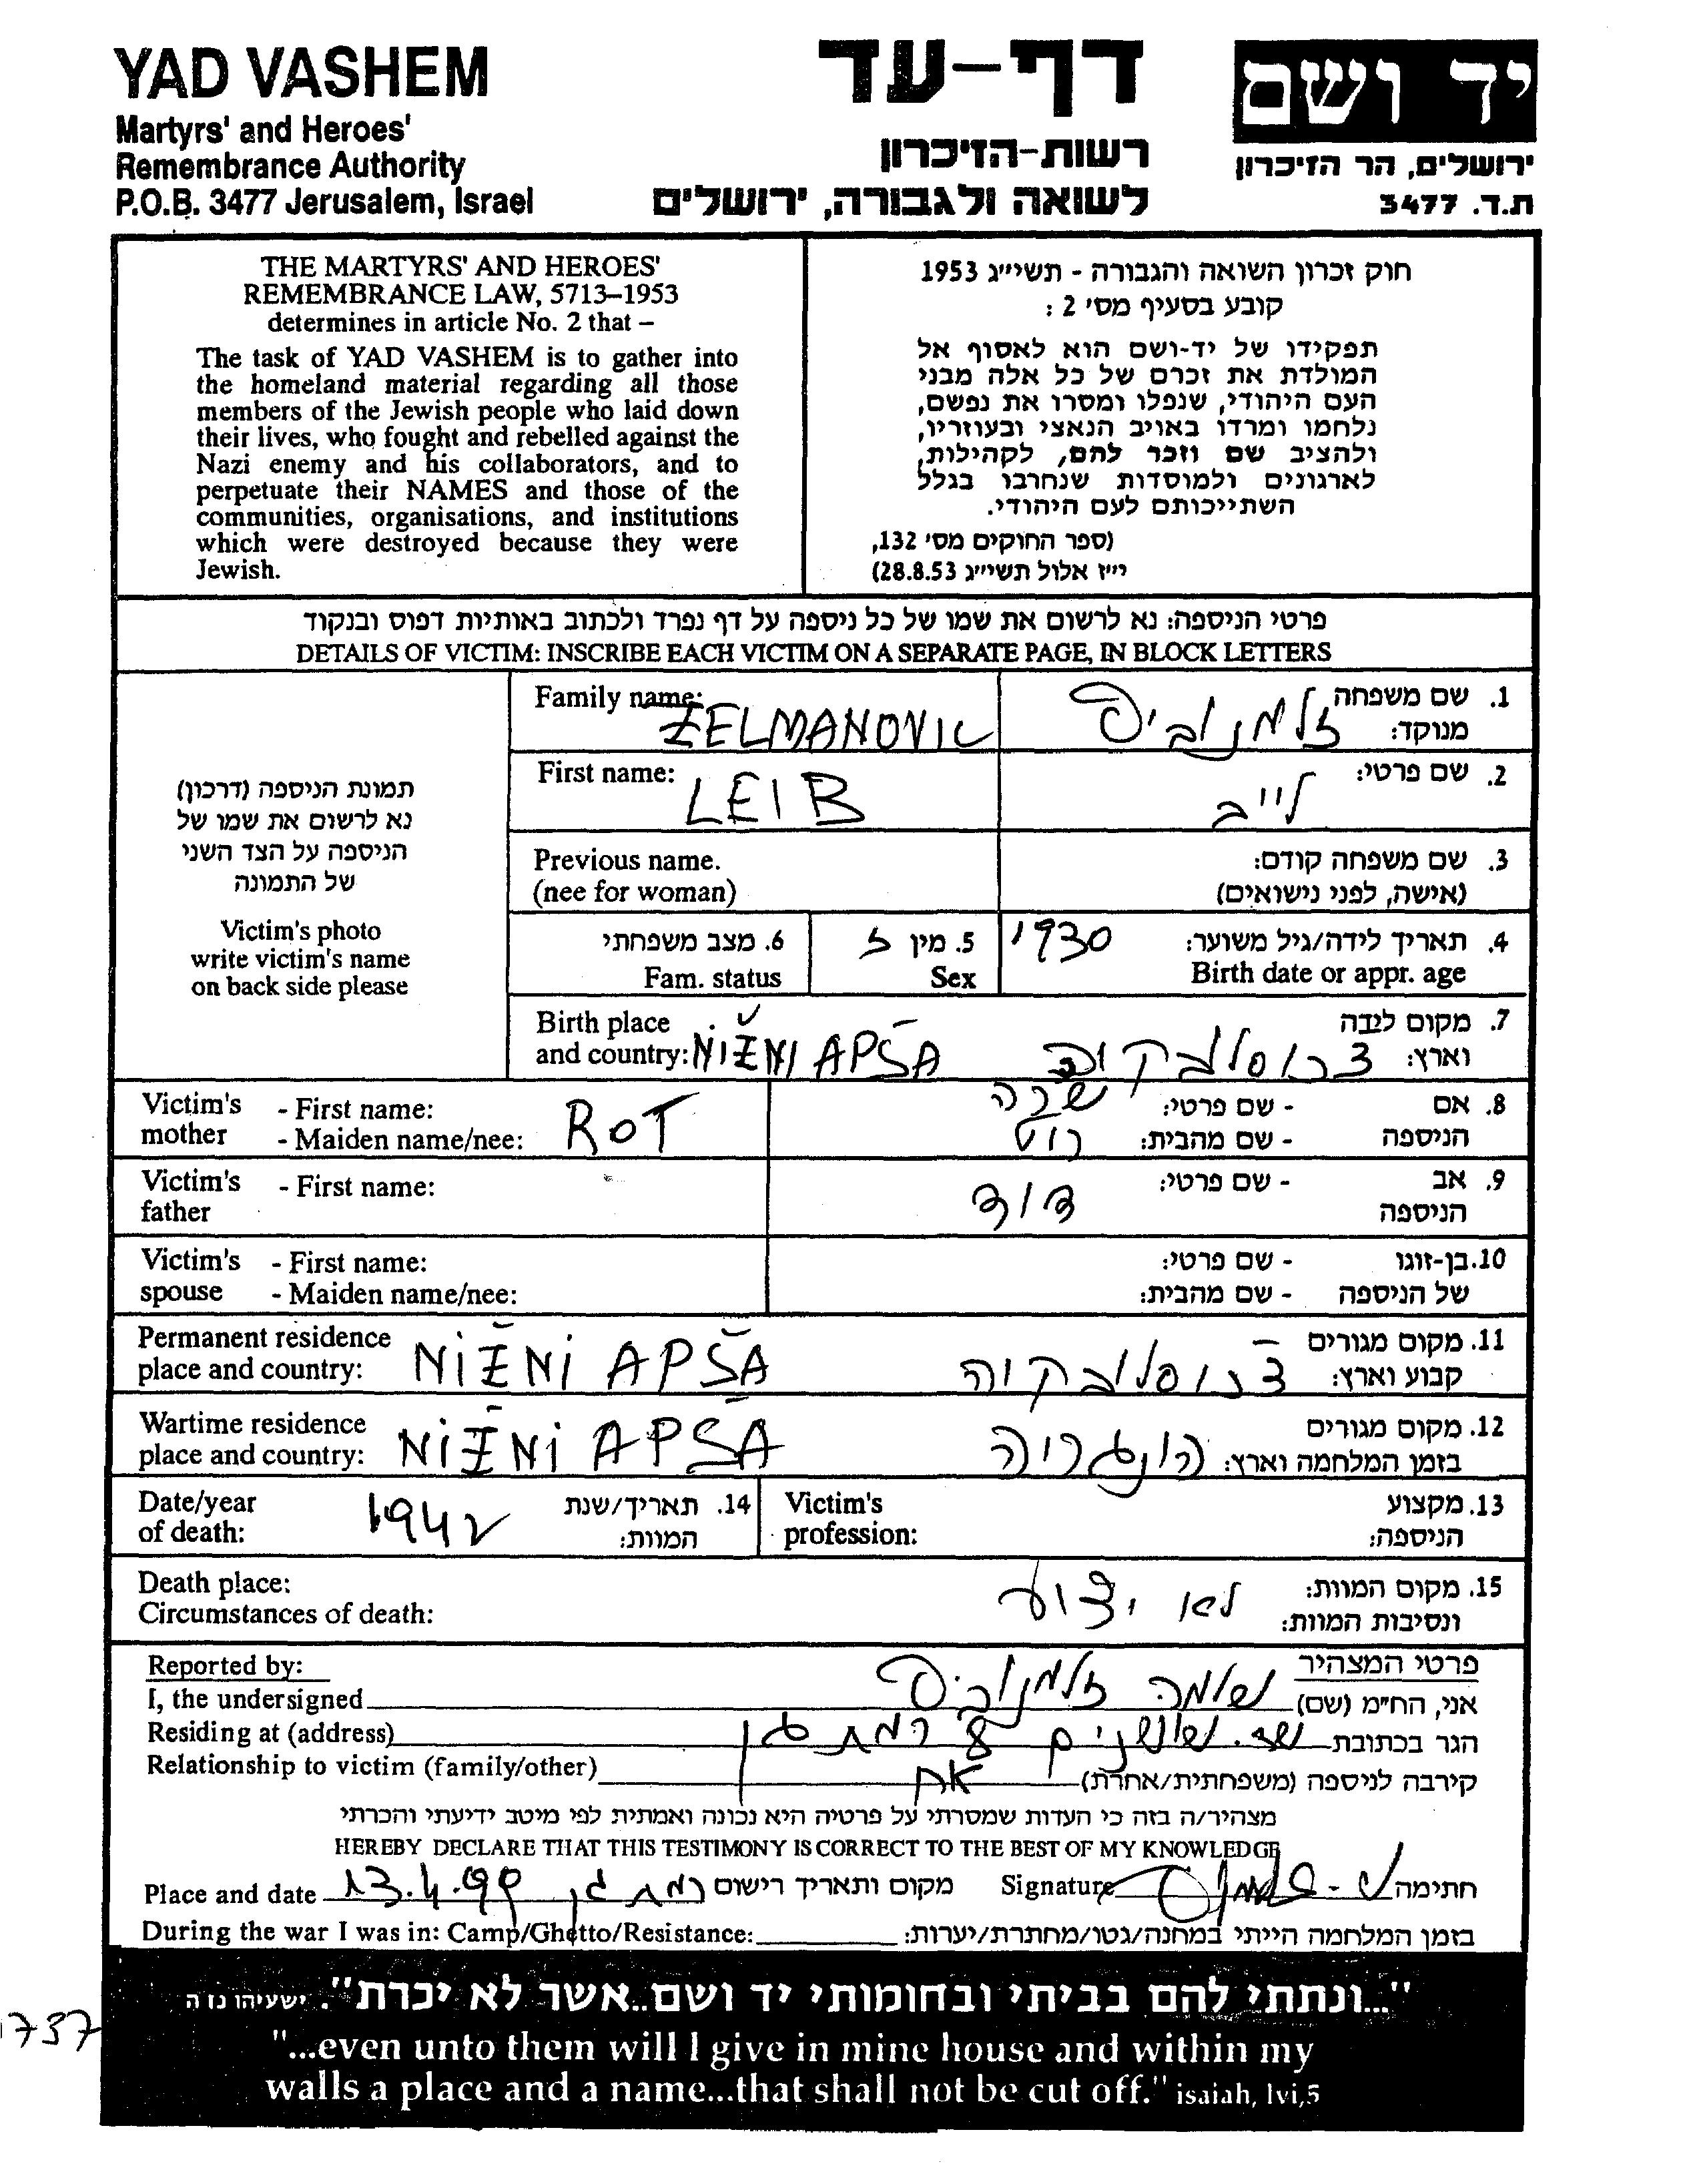 YAD VASHEM
Martyrs' and Heroes'
Remembrance Authority
P.O.B. 3477 Jerusalem, Israel
דף-עד
רשות-הזיכרון
לשואה ולגבורה, ירושלים
יד ושם
ירושלים, הר הזיכרון
ת.ד. 3477
THE MARTYRS' AND HEROES'
REMEMBRANCE LAW, 5713–1953
determines in article No. 2 that –
The task of YAD VASHEM is to gather into
the homeland material regarding all those
members of the Jewish people who laid down
their lives, who fought and rebelled against the
Nazi enemy and his collaborators, and to
perpetuate their NAMES and those of the
communities, organisations, and institutions
which were destroyed because they were
Jewish.
חוק זכרון השואה והגבורה - תשי״ג 1953
קובע בסעיף מס׳ 2 :
תפקידו של יד-ושם הוא לאסוף אל
המולדת את זכרם של כל אלה מבני
העם היהודי, שנפלו ומסרו את נפשם,
נלחמו ומרדו באויב הנאצי ובעוזריו,
ולהציב שם וזכר להם, לקהילות,
לארגונים ולמוסדות שנחרבו בגלל
השתייכותם לעם היהודי.
(ספר החוקים מס׳ 132,
י״ז אלול תשי״ג 28.8.53)
פרטי הניספה: נא לרשום את שמו של כל ניספה על דף נפרד ולכתוב באותיות דפוס ובנקוד
DETAILS OF VICTIM: INSCRIBE EACH VICTIM ON A SEPARATE PAGE, IN BLOCK LETTERS
תמונת הניספה (דרכון)
נא לרשום את שמו של
הניספה על הצד השני
של התמונה
Victim's photo
write victim's name
on back side please
Family name: ŽELMANOVIC
1. שם משפחה מנוקד: זלמנוביץ
First name: LEIB
2. שם פרטי: לייב
Previous name.
(nee for woman)
3. שם משפחה קודם:
(אישה, לפני נישואים)
4. תאריך לידה/גיל משוער: 1930
Birth date or appr. age
5. מין ז
Sex
6. מצב משפחתי
Fam. status
Birth place
and country: NIŽNI APŠA
7. מקום לידה
וארץ: צכוסלבקיה
Victim's mother - First name:
- Maiden name/nee: ROT
8. אם הניספה - שם פרטי: שרה
- שם מהבית: רוט
Victim's father - First name:
9. אב הניספה - שם פרטי: דוד
Victim's spouse - First name:
- Maiden name/nee:
10. בן-זוגו של הניספה - שם פרטי:
- שם מהבית:
Permanent residence
place and country: NIŽNI APŠA
11. מקום מגורים
קבוע וארץ: צכוסלבקיה
Wartime residence
place and country: NIŽNI APŠA
12. מקום מגורים
בזמן המלחמה וארץ: הונגריה
Date/year
of death: 1942
14. תאריך/שנת
המוות:
Victim's
profession:
13. מקצוע
הניספה:
Death place:
Circumstances of death:
15. מקום המוות: לא ידוע
ונסיבות המוות:
Reported by:
פרטי המצהיר
I, the undersigned
אני, הח״מ (שם) שלמה זלמנוביץ
Residing at (address)
הגר בכתובת שד. שושנים 8 רמת גן
Relationship to victim (family/other)
קירבה לניספה (משפחתית/אחרת) אח
מצהיר/ה בזה כי העדות שמסרתי על פרטיה היא נכונה ואמתית לפי מיטב ידיעתי והכרתי
HEREBY DECLARE THAT THIS TESTIMONY IS CORRECT TO THE BEST OF MY KNOWLEDGE
Place and date 13.4.99 רמת גן מקום ותאריך רישום
Signature חתימה
During the war I was in: Camp/Ghetto/Resistance:
בזמן המלחמה הייתי במחנה/גטו/מחתרת/יערות:
"...ונתתי להם בביתי ובחומותי יד ושם..אשר לא יכרת". ישעיהו נו ה
"...even unto them will I give in mine house and within my
walls a place and a name...that shall not be cut off." isaiah, lvi,5
1737